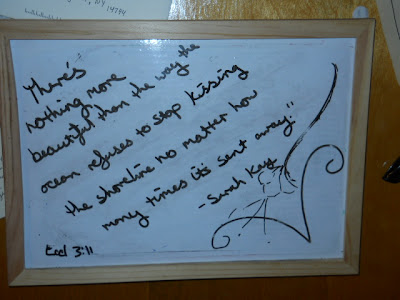 NY 14744
There's
nothing more
beautiful than the way the
ocean refuses to stop kissing
the shoreline no matter how
many times it's sent away."
-Sarah Kay
Eccl 3:11